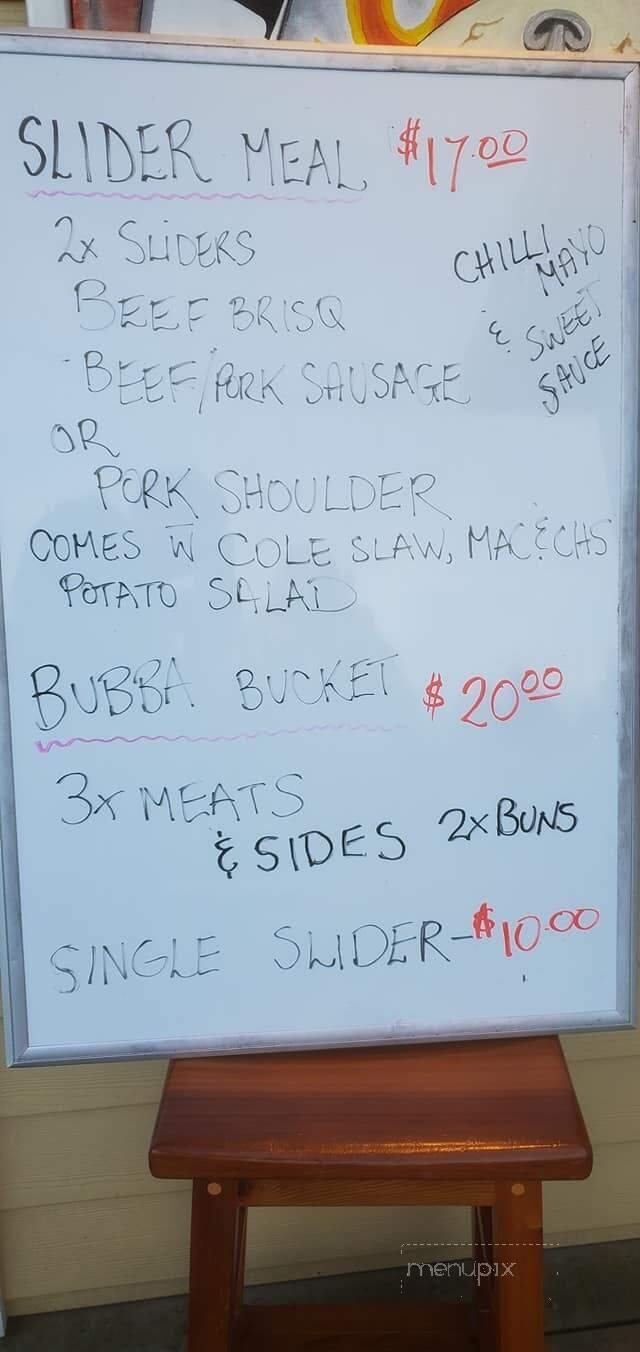 SLIDER MEAL $17.00
2x SLiDERS
BEEF BRISQ
BEEF/PORK SAUSAGE
OR
PORK SHOULDER
CHILLI
MAYO
& SWEET
SAUCE
COMES W COLE SLAW, MAC & CHS
POTATO SALAD
BUBBA BUCKET $20.00
3x MEATS
& SIDES 2x BUNS
SINGLE SLIDER-$10.00
menupix